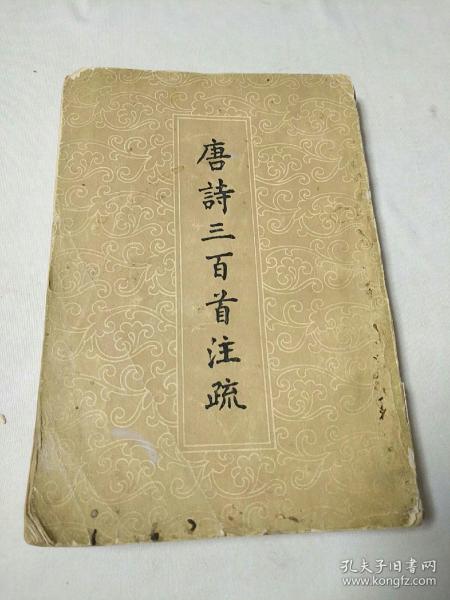 唐詩三百首注疏
孔夫子旧书网
www.kongfz.com